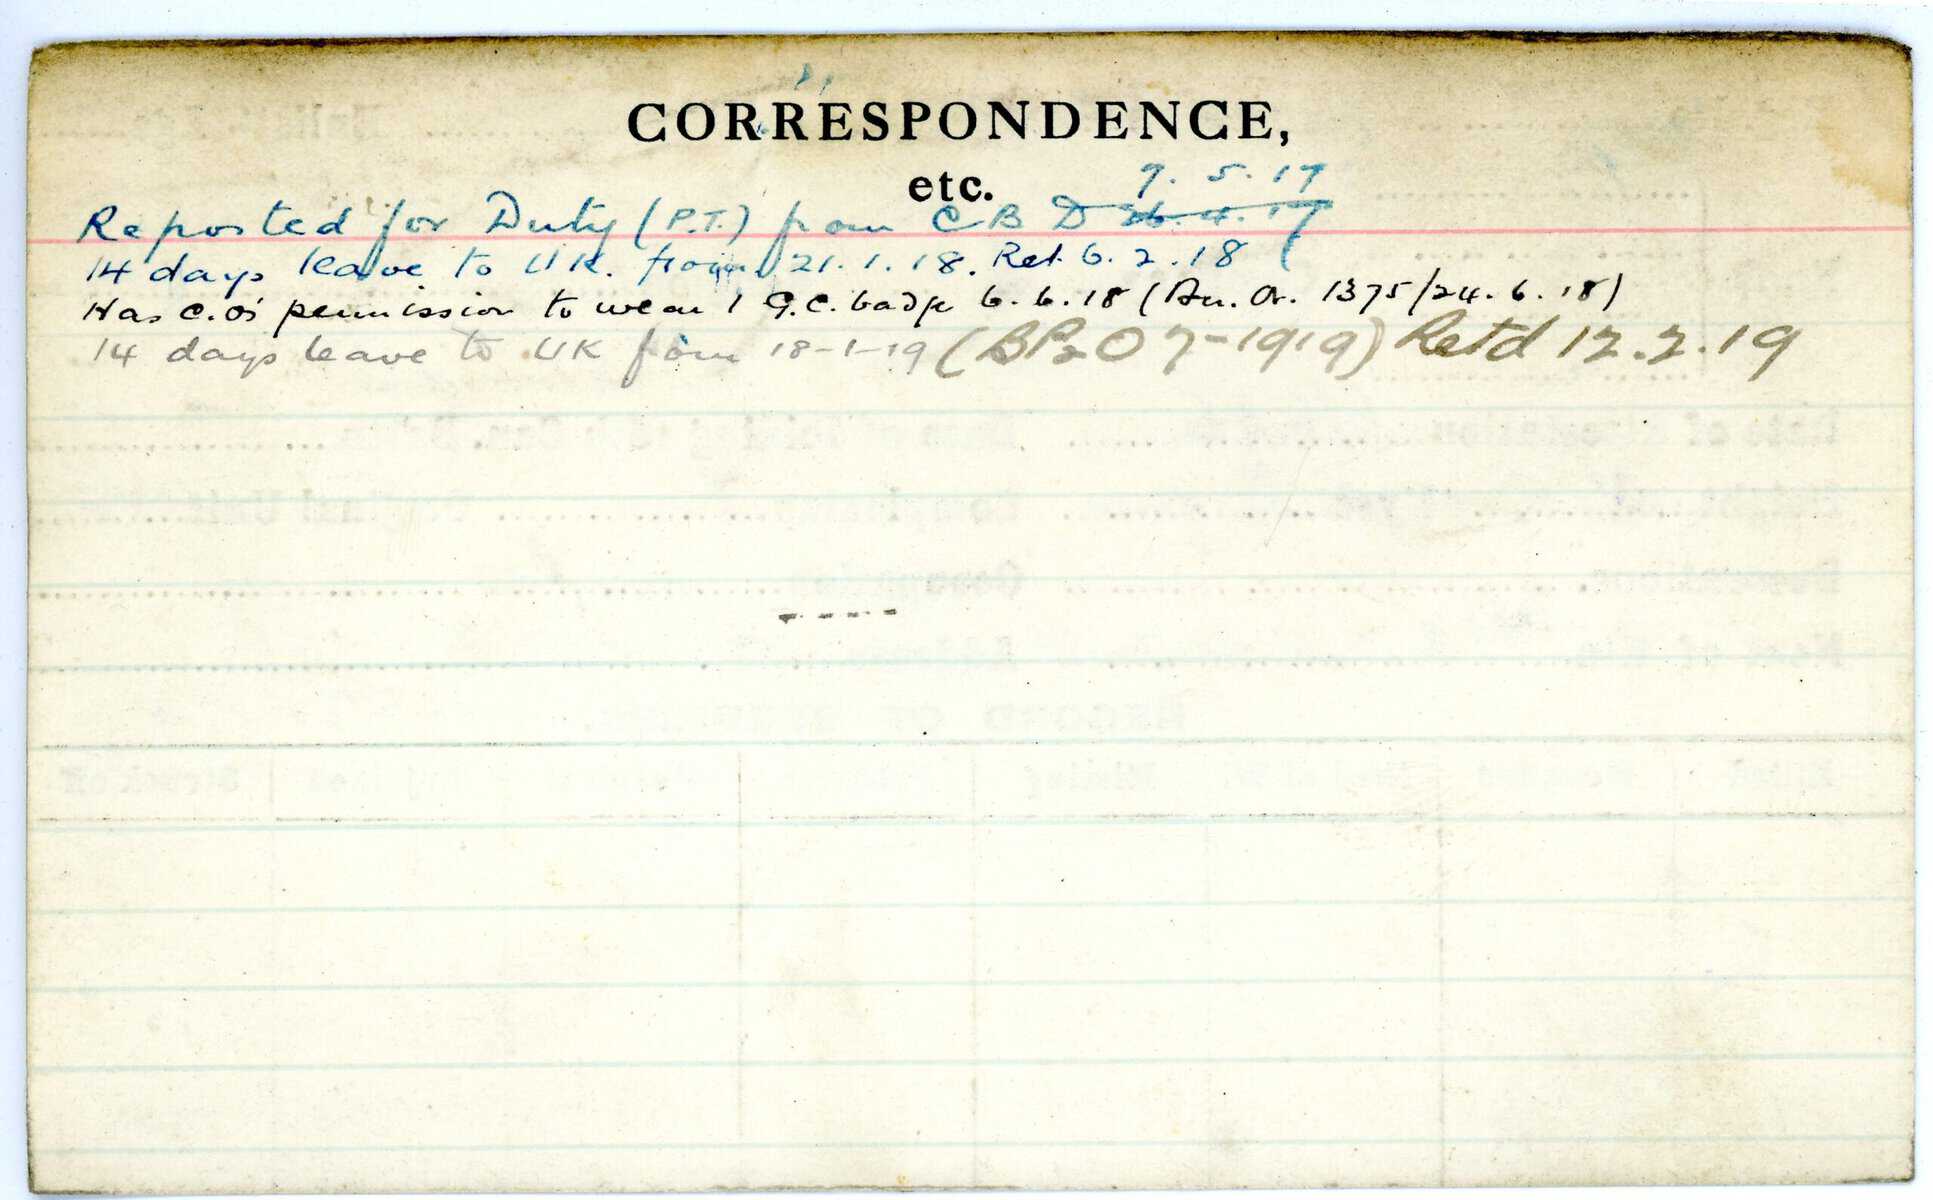 CORRESPONDENCE,
etc.
7.5.17
Reported for Duty (P.T.) from C B D 26.4.17
14 days leave to UK. from 21.1.18. Ret 6.2.18
Has C.O's permission to wear 1 G.C. badge 6.6.18 (Au. Or. 1375/24.6.18)
14 days leave to UK from 18-1-19 (BP2O 7-1919) Ret'd 12.2.19